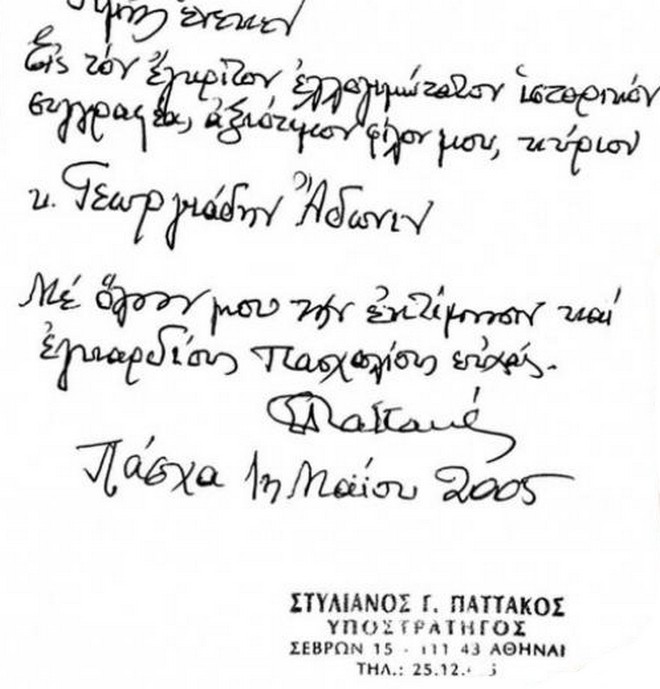 τιμῆς ἕνεκεν
Εἰς τόν ἔγκριτον ἐλλογιμώτατον ἱστορικόν
συγγραφέα, ἀξιότιμον φίλον μου, κύριον
κ. Γεωργιάδην Ἄδωνιν
Μέ ὅλην μου τήν ἐκτίμησιν καί
ἐγκαρδίους Πασχαλίους εὐχάς.
Παττακός
Πάσχα 1η Μαΐου 2005
ΣΤΥΛΙΑΝΟΣ Γ. ΠΑΤΤΑΚΟΣ
ΥΠΟΣΤΡΑΤΗΓΟΣ
ΣΕΒΡΩΝ 15 - 111 43 ΑΘΗΝΑΙ
ΤΗΛ.: 25.12.